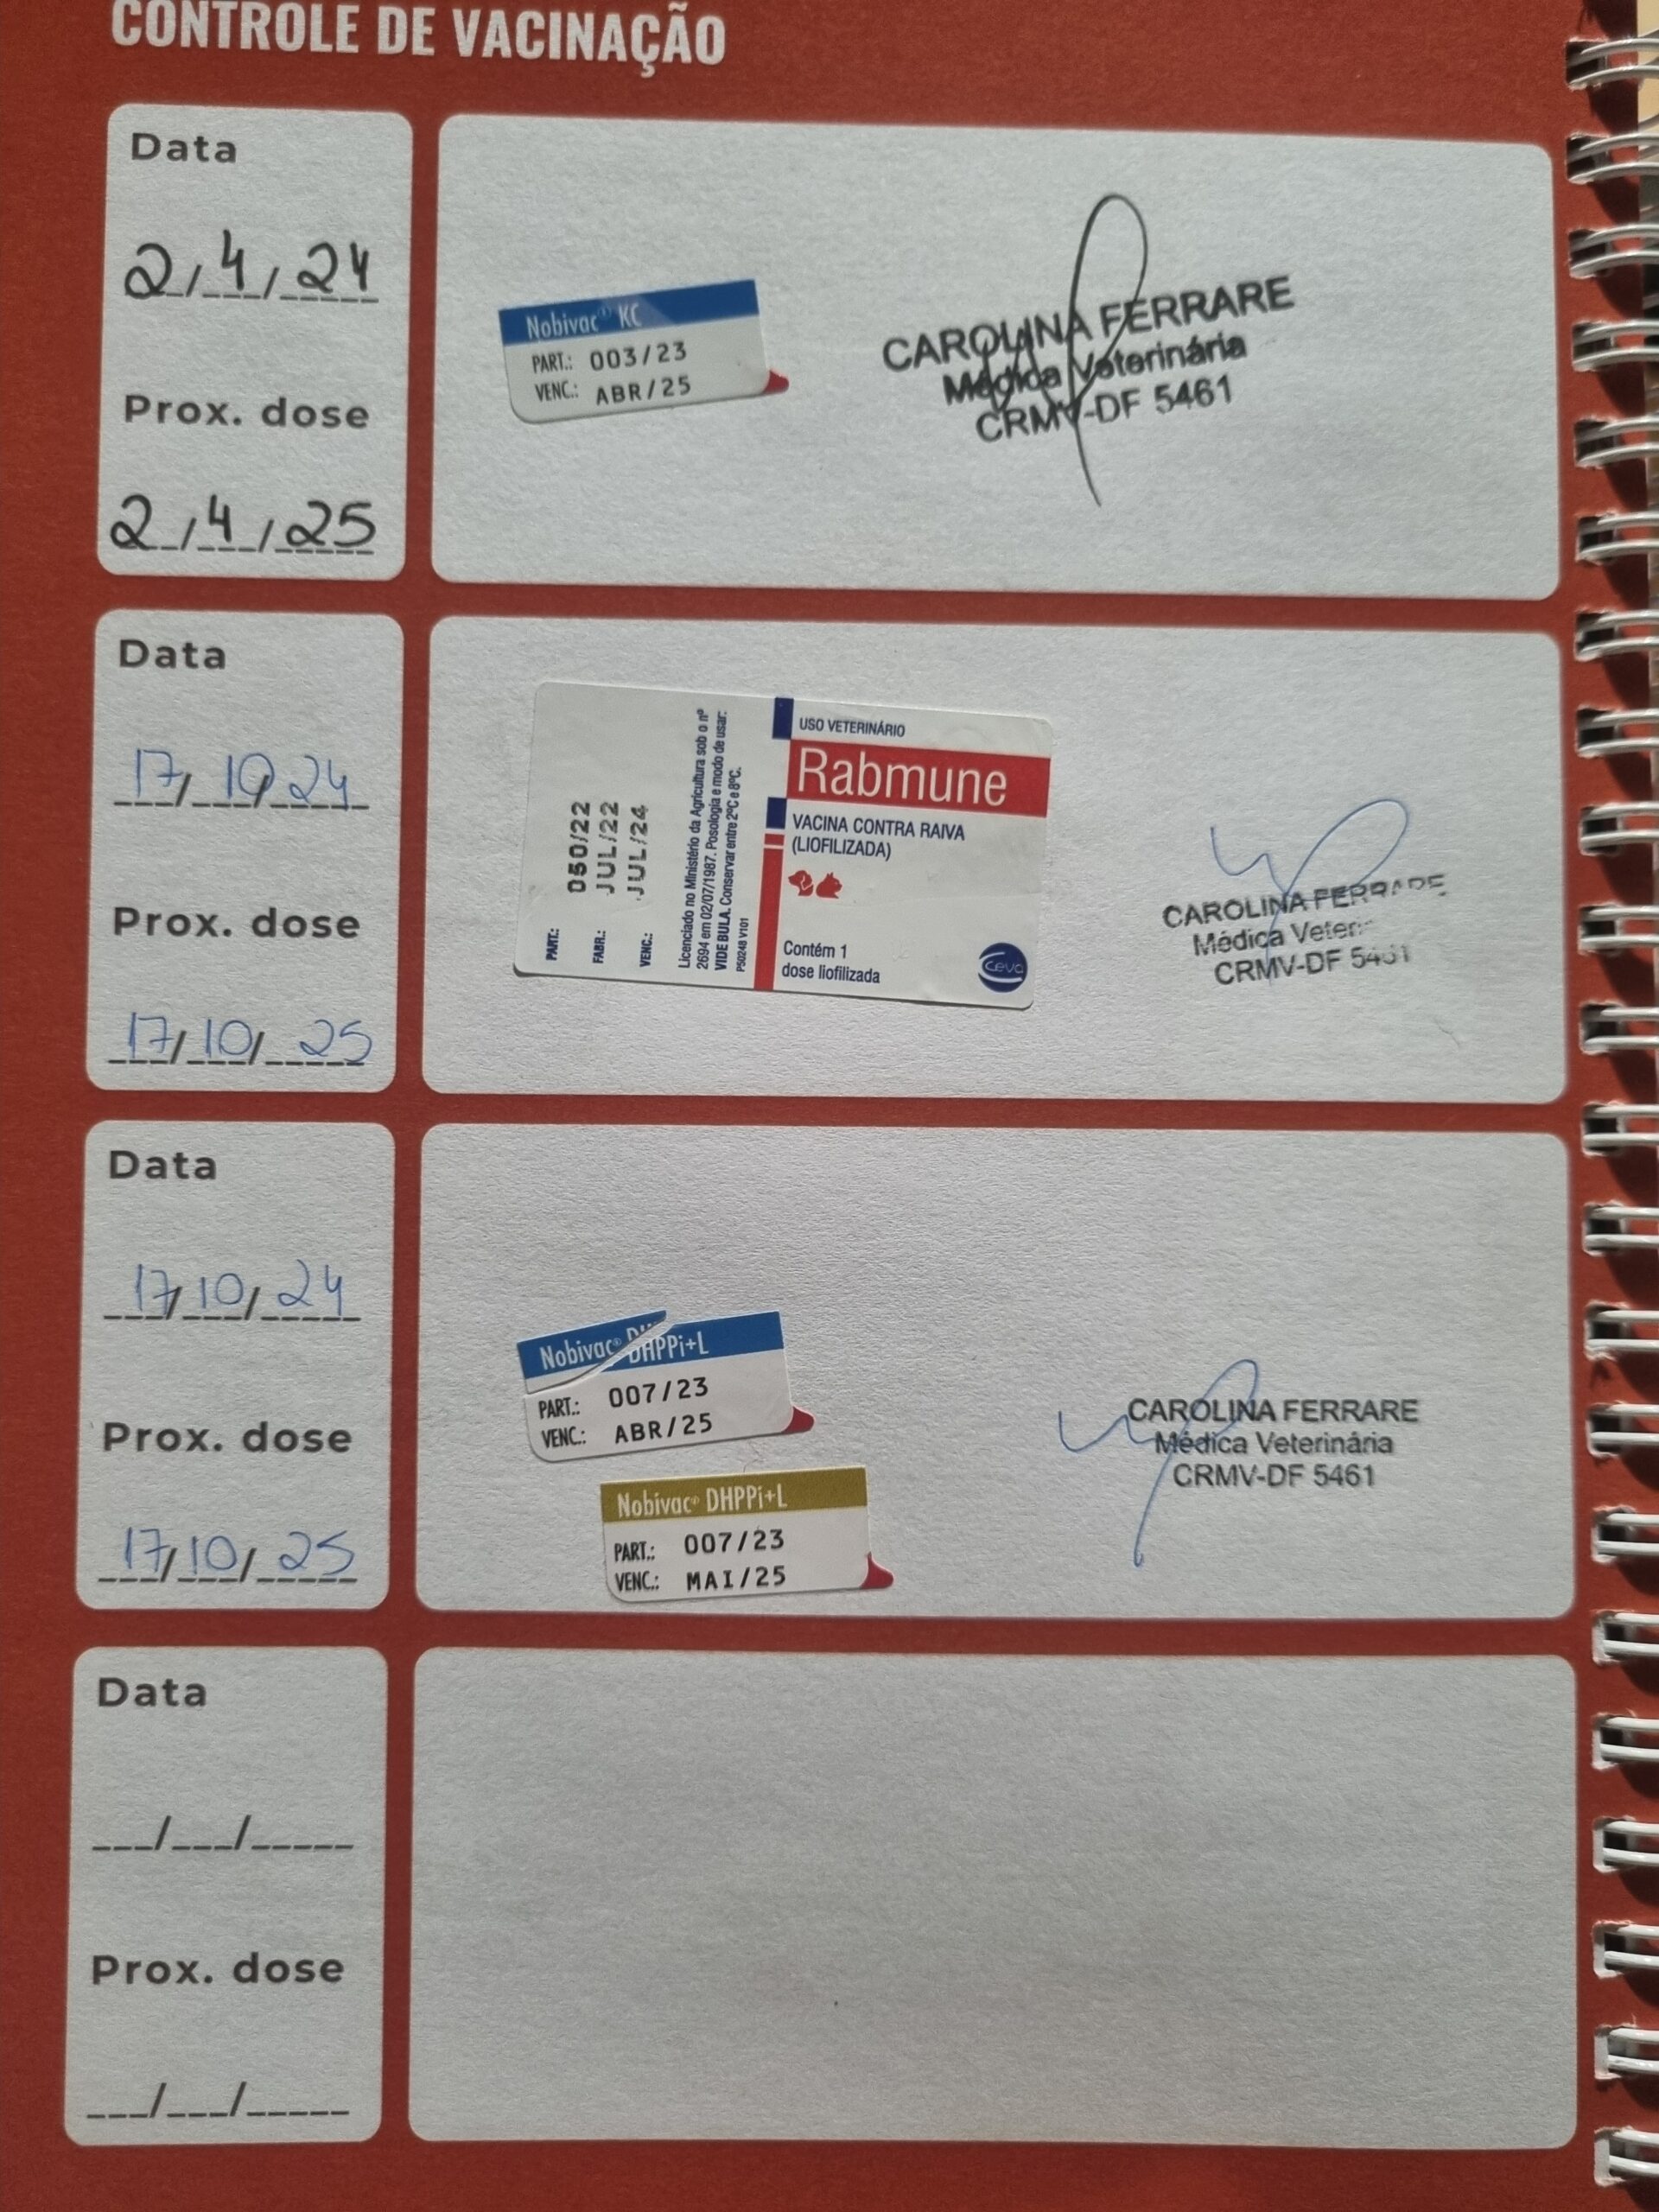 CONTROLE DE VACINAÇÃO
Data
2/4/24
Prox. dose
2/4/25
Nobivac® KC
PART.: 003/23
VENC.: ABR/25
CAROLINA FERRARE
Médica Veterinária
CRMV-DF 5461
Data
17/10/24
Prox. dose
17/10/25
PART.: 050/22
FABR.: JUL/22
VENC.: JUL/24
Licenciado no Ministério da Agricultura sob o nº
2694 em 02/07/1987. Posologia e modo de usar:
VIDE BULA. Conservar entre 2ºC e 8ºC.
P50248 V101
USO VETERINÁRIO
Rabmune
VACINA CONTRA RAIVA
(LIOFILIZADA)
Contém 1
dose liofilizada
Ceva
CAROLINA FERRARE
Médica Veter
CRMV-DF 5461
Data
17/10/24
Prox. dose
17/10/25
Nobivac® DHPPi+L
PART.: 007/23
VENC.: ABR/25
Nobivac® DHPPi+L
PART.: 007/23
VENC.: MAI/25
CAROLINA FERRARE
Médica Veterinária
CRMV-DF 5461
Data
___/___/_____
Prox. dose
___/___/_____